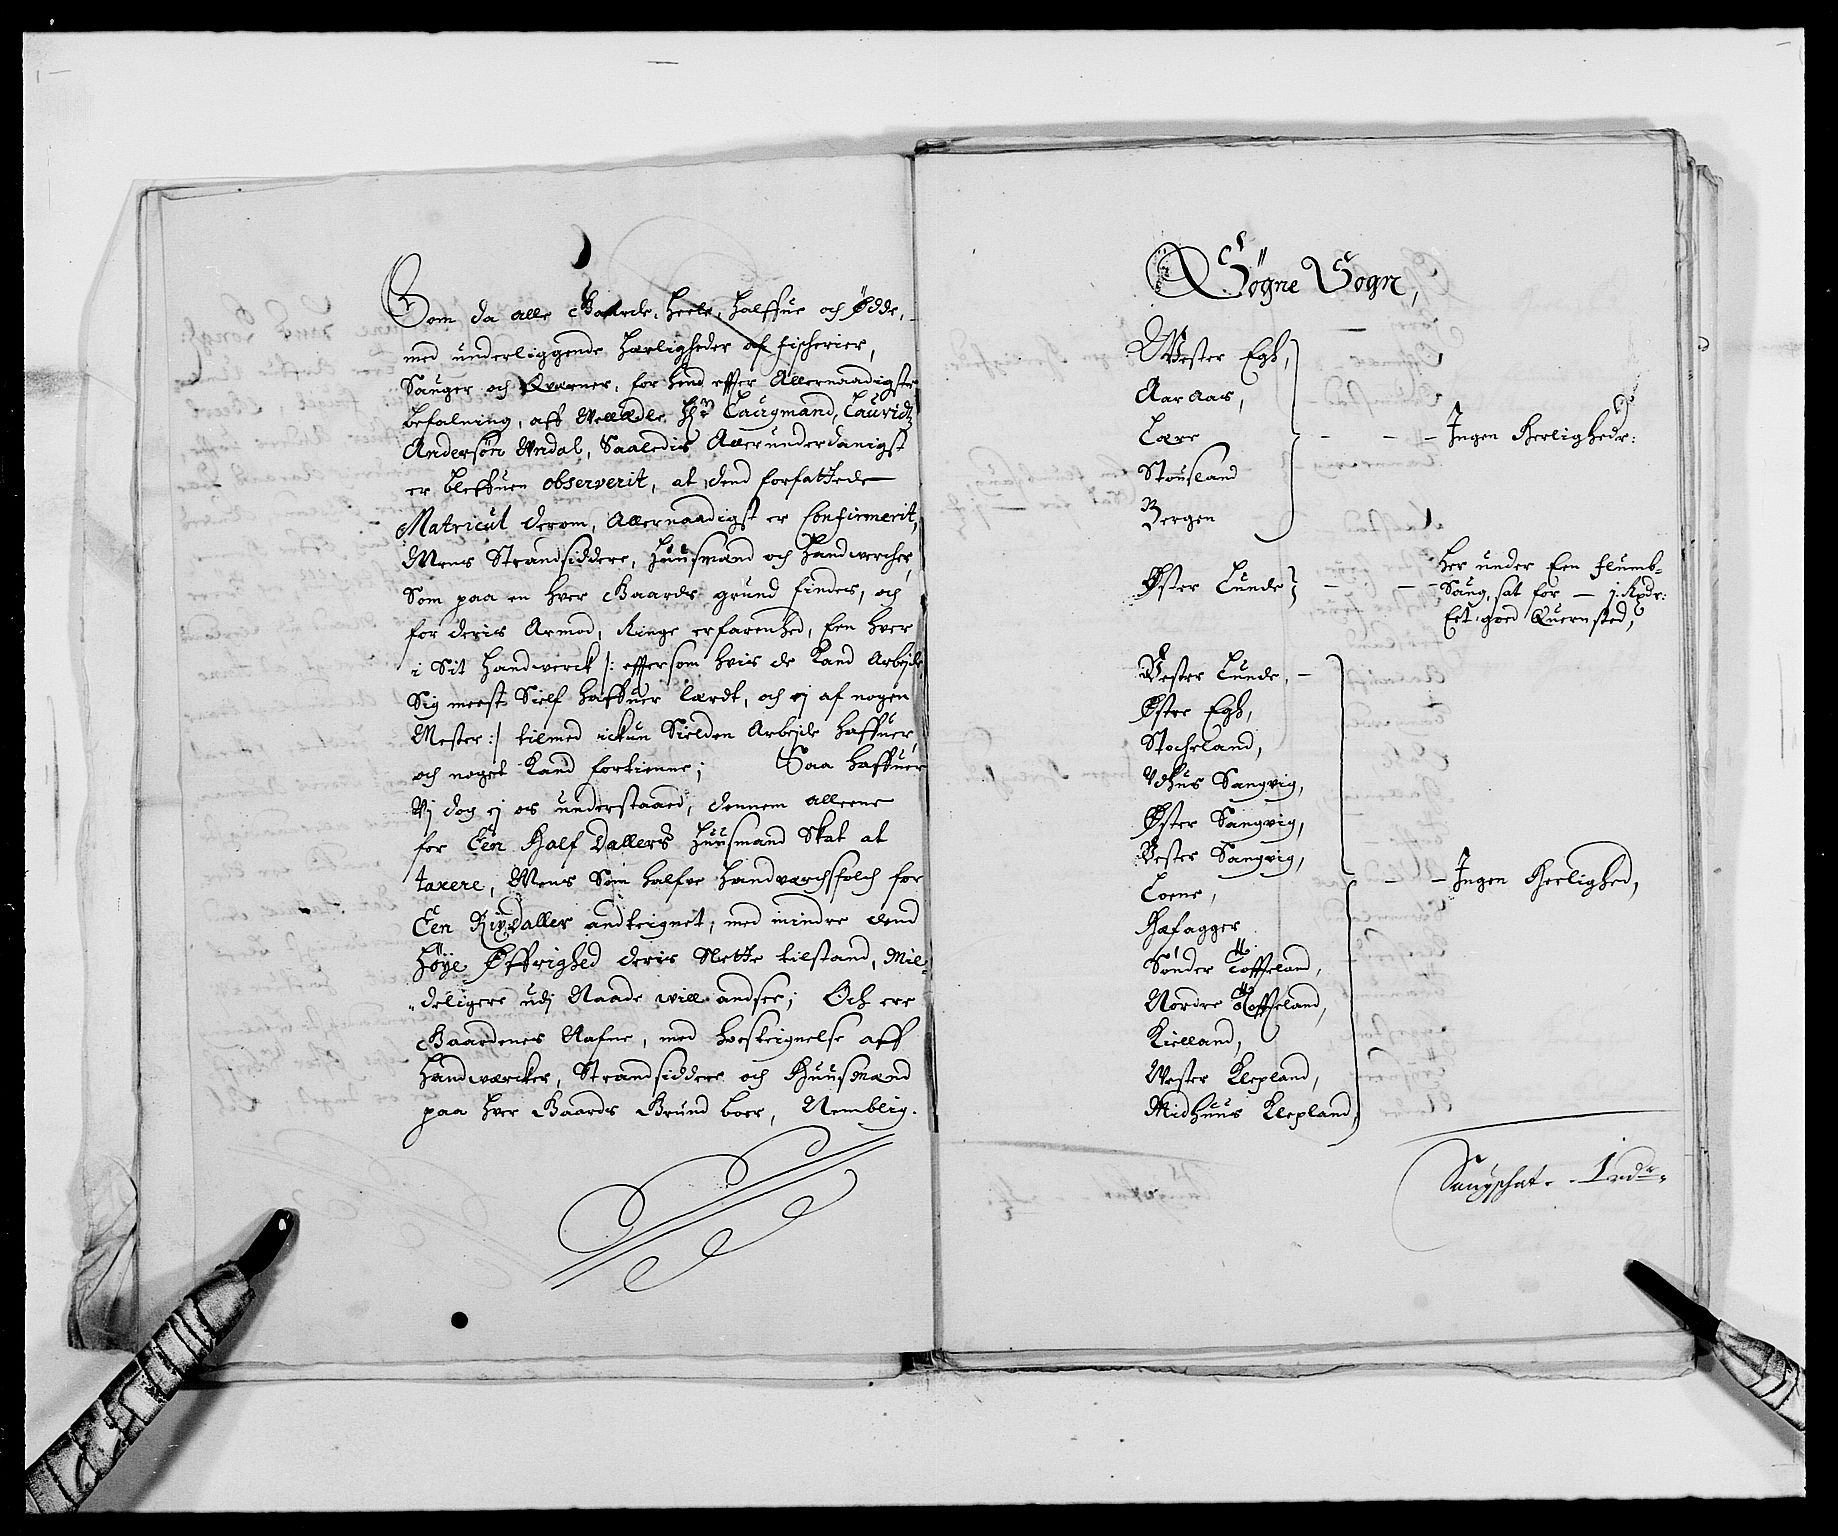 Som da alle Gaarde, Heele, Halffue och Ødde,
med underliggende Herligheder af fischerier,
Sauger och Qværner, for hend effter Allernaadigste
befalning, aff Velædle Hr Laugmand, Lauridtz
Andersøn Undal, Saaledis Allerunderdanigst
er bleffuen observerit, at dend forfattede
Matricul derom, Allernaadigst er Confirmerit,
Mens Strandsiddere, Huusmænd och Handwercher,
Som paa en hver Gaards grund findes, och
for deris Armod, Ringe erfarenhed, Een hver
i Sit Handwerck /: efftersom hvis de kand Arbejde
Sig meest Sielf haffuer lærdt, och ej af nogen
Mester :/ tilmed ickun Sielden Arbejde haffuer,
och noget kand fortienne; Saa haffuer
Vj dog ej os understaaed, dennem alleene
for Een Half Dallers Huusmand Skat at
taxere, Mens Som halfve Handværchsfolch for
Een Rixdaller andteignet, med mindre dend
Høye Øffrighed deris Slette tilstand, Mil-
deligere udj Naade will andsee; Och ere
Gaardenes Nafne, med hosteignelse aff
Handwærcker, Strandsiddere och Huusmænd
paa hver Gaards Grund boer, Nemblig.
Søgne Sogn,
Wester Egh,
Aaraas,
Lære
Stousland
Bergen
- - - Ingen Herligheder:
Øster Lunde - -
Her under Een flumb-
Saug, sat for - 1 Rixdr:
Eet goed Quernsted,
Vester Lunde, -
Østre Egh,
Stocheland,
Udhus Sangvig,
Øster Sangvig,
Vester Sangvig,
Loene,
Hafagger
Sønder Toffteland,
Nordre Toffteland,
Kielland,
Wester Klepland,
Midhuus Klepland,
- - Ingen Herlighed,
Saugschat - 1 rdr